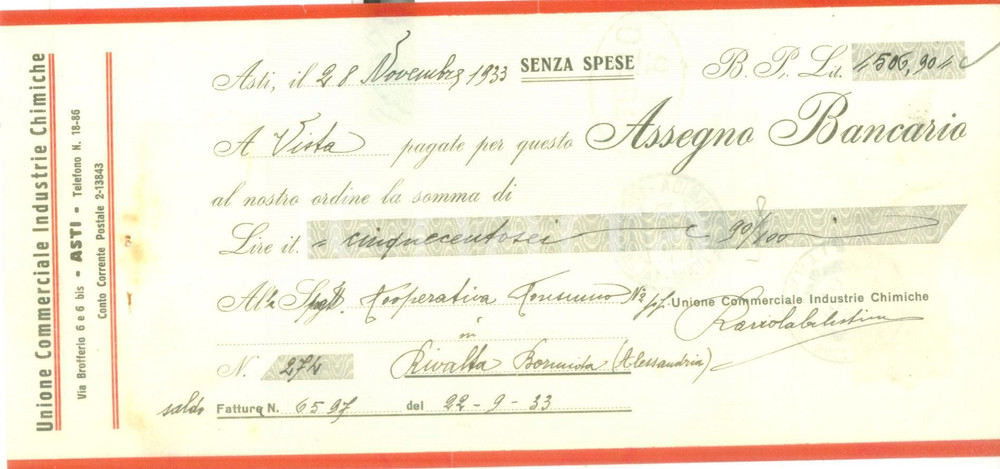 Unione Commerciale Industrie Chimiche
Via Brofferio 6 e 6 bis - ASTI - Telefono N. 18-86
Conto Corrente Postale 2-13843
Asti, il 28 Novembre 1933 SENZA SPESE B. P. Lit. 506,90
A Vista pagate per questo Assegno Bancario
al nostro ordine la somma di
Lire it. = cinquecentosei 90/100
Alla Spett. Kooperativa Konsumo N° 2
Unione Commerciale Industrie Chimiche
in
N. 274 Rivalta Bormida (Alessandria)
saldo Fattura N. 6597 del 22-9-33